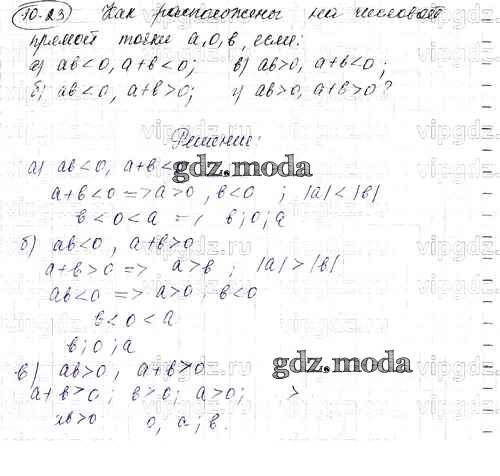 10-23 Как расположены на числовой
прямой точки а, 0, в, если:
а) ав<0, а+в<0; в) ав>0, а+в<0;
б) ав<0, а+в>0; г) ав>0, а+в>0?
Решение:
а) ав<0, а+в<0
gdz.moda
а+в<0 => а>0, в<0 ; |а|<|в|
в<0<а => в; 0; а
б) ав<0, а+в>0
а+в>0 => а>в ; |а|>|в|
ав<0 => а>0, в<0
в<0<а
в; 0; а
gdz.moda
в) ав>0, а+в>0
а+в>0; в>0; а>0; >
ав>0 0, а; в.